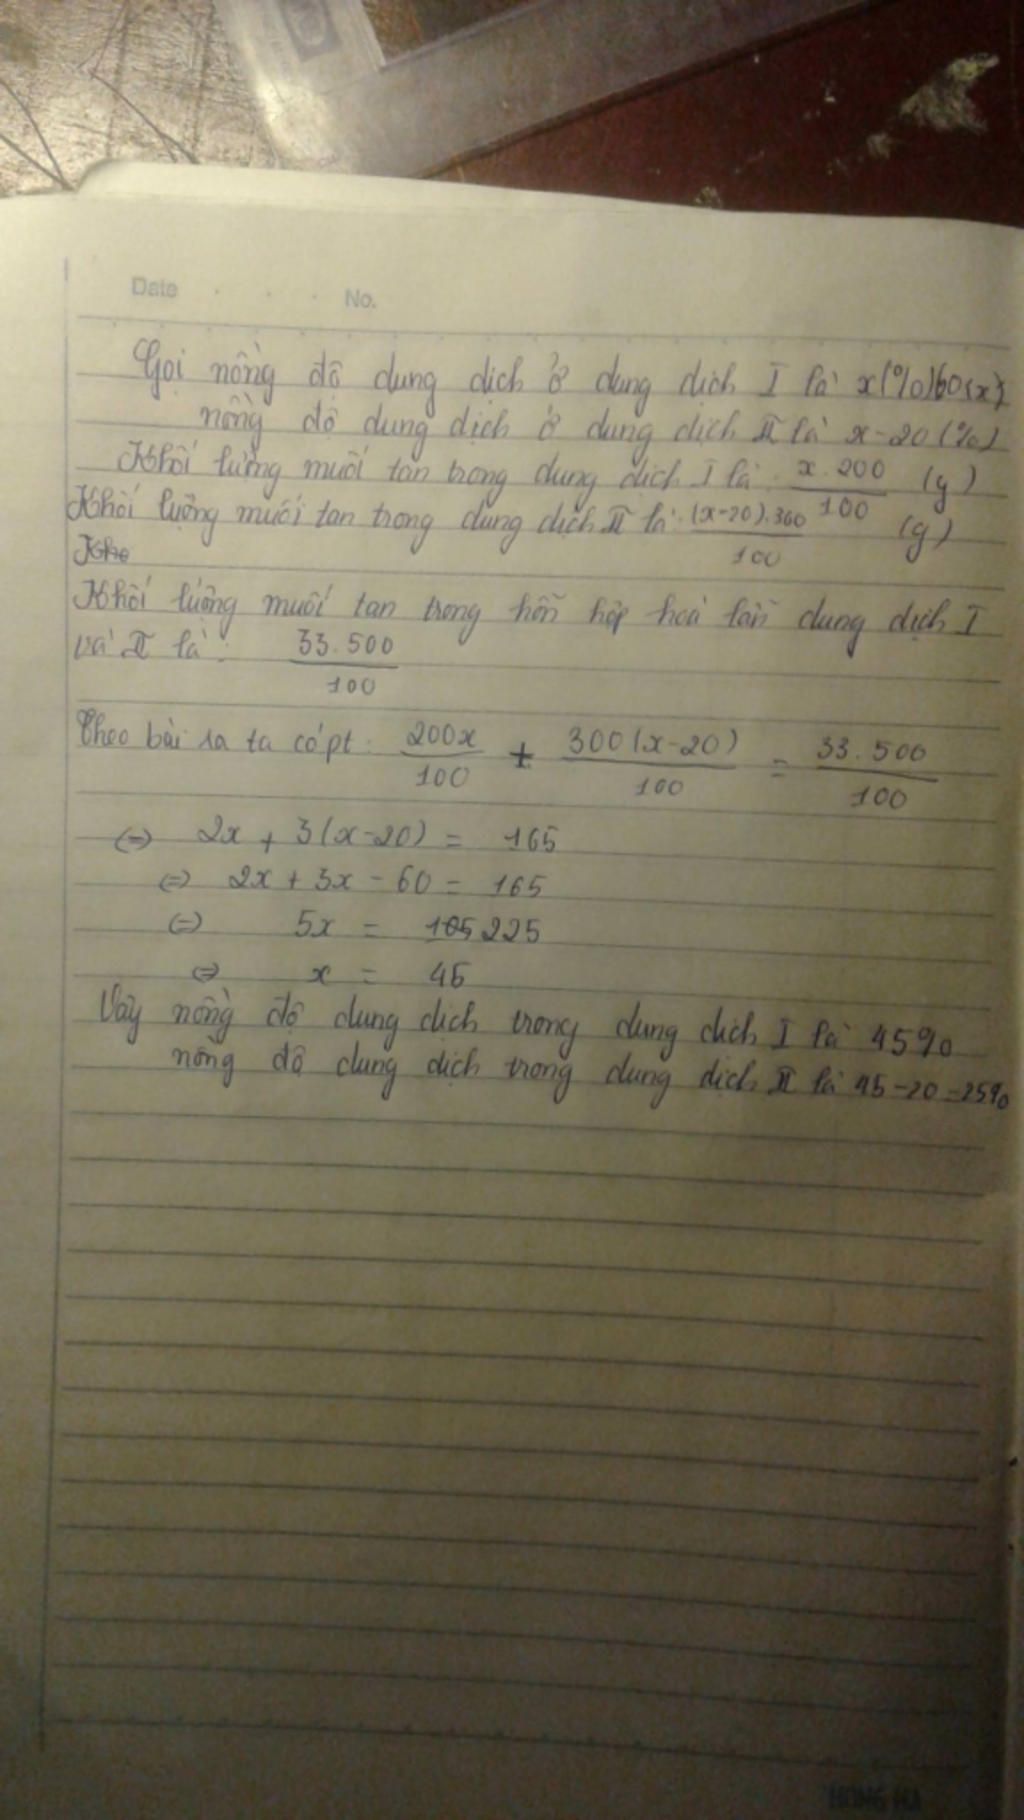 Date No.
Gọi nồng độ dung dịch ở dung dịch I là x(%)
nồng độ dung dịch ở dung dịch II là x-20(%)
Khối lượng muối tan trong dung dịch I là: x.200/100 (g)
Khối lượng muối tan trong dung dịch II là: (x-20).300/100 (g)
Kho
Khối lượng muối tan trong hỗn hợp hoà tan dung dịch I
và II là: 33.500/100
Theo bài ra ta có pt: 200x/100 + 300(x-20)/100 = 33.500/100
(=) 2x + 3(x-20) = 165
(=) 2x + 3x - 60 = 165
(=) 5x = 105 225
(=) x = 45
Vậy nồng độ dung dịch trong dung dịch I là 45%
nồng độ dung dịch trong dung dịch II là 45-20=25%
HONG HA